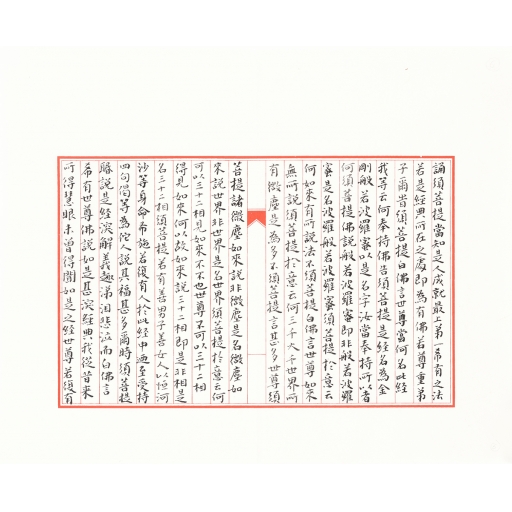 誦須菩提當知是人成就最上第一希有之法
若是經典所在之處即為有佛若尊重弟
子爾時須菩提白佛言世尊當何名此經
我等云何奉持佛告須菩提是經名為金
剛般若波羅蜜以是名字汝當奉持所以者
何須菩提佛說般若波羅蜜即非般若波羅
蜜是名波羅般若波羅蜜須菩提於意云
何如來有所說法不須菩提白佛言世尊如來
無所說須菩提於意云何三千大千世界所
有微塵是為多不須菩提言甚多世尊須
菩提諸微塵如來說非微塵是名微塵如
來說世界非世界是名世界須菩提於意云何
可以三十二相見如來不不也世尊不可以三十二相
得見如來何以故如來說三十二相即是非相是
名三十二相須菩提若有善男子善女人以恒河
沙等身命布施若復有人於此經中乃至受持
四句偈等為他人說其福甚多爾時須菩提
聞說是經深解義趣涕泪悲泣而白佛言
希有世尊佛說如是甚深經典我從昔來
所得慧眼未曾得聞如是之經世尊若復有